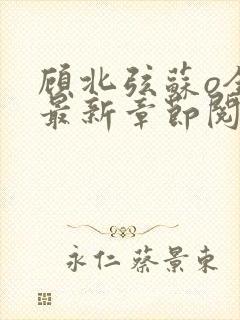 顾北弦蘇o全
最新章節阅
永仁蔡景東